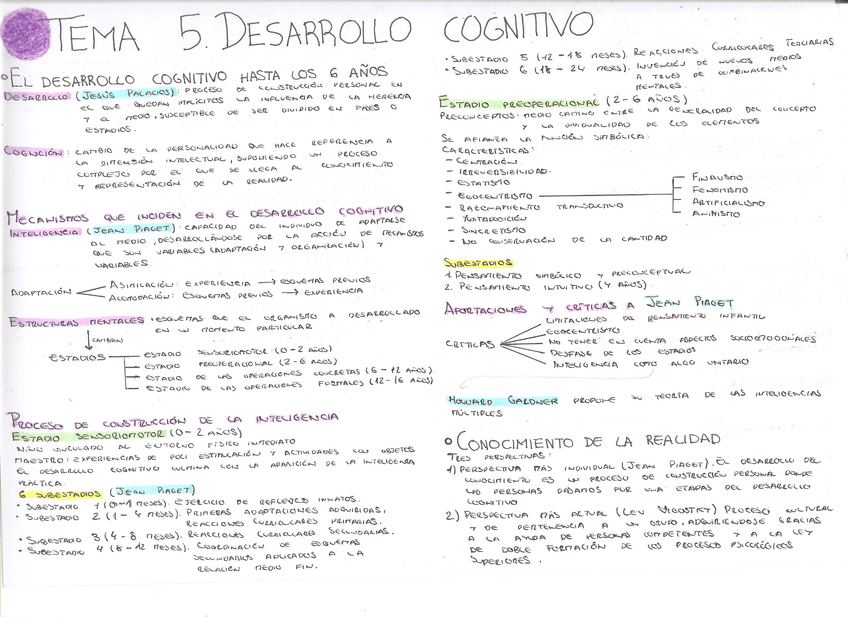 TEMA 5. DESARROLLO COGNITIVO
EL DESARROLLO COGNITIVO HASTA LOS 6 AÑOS
DESARROLLO (JESÚS PALACIOS): PROCESO DE CONSTRUCCIÓN PERSONAL EN
EL QUE QUEDAN IMPLÍCITOS LA INFLUENCIA DE LA HERENCIA
Y EL MEDIO, SUSCEPTIBLE DE SER DIVIDIDO EN FASES O
ESTADIOS.
COGNICIÓN: CAMBIO DE LA PERSONALIDAD QUE HACE REFERENCIA A
LA DIMENSIÓN INTELECTUAL, SUPONIENDO UN PROCESO
COMPLEJO POR EL QUE SE LLEGA AL CONOCIMIENTO
Y REPRESENTACIÓN DE LA REALIDAD.
MECANISMOS QUE INCIDEN EN EL DESARROLLO COGNITIVO
INTELIGENCIA (JEAN PIAGET): CAPACIDAD DEL INDIVIDUO DE ADAPTARSE
AL MEDIO, DESARROLLÁNDOSE POR LA ACCIÓN DE MECANISMOS
QUE SON VARIABLES (ADAPTACIÓN Y ORGANIZACIÓN) Y
VARIABLES.
ADAPTACIÓN
ASIMILACIÓN: EXPERIENCIA → ESQUEMAS PREVIOS
ACOMODACIÓN: ESQUEMAS PREVIOS → EXPERIENCIA
ESTRUCTURAS MENTALES: ESQUEMAS QUE EL ORGANISMO A DESARROLLADO
EN UN MOMENTO PARTICULAR
CAMBIAN
ESTADIOS
ESTADIO SENSORIOMOTOR (0-2 AÑOS)
ESTADIO PREOPERACIONAL (2-6 AÑOS)
ESTADIO DE LAS OPERACIONES CONCRETAS (6-12 AÑOS)
ESTADIO DE LAS OPERACIONES FORMALES (12-16 AÑOS)
PROCESO DE CONSTRUCCIÓN DE LA INTELIGENCIA
ESTADIO SENSORIOMOTOR (0-2 AÑOS)
NIÑO VINCULADO AL ENTORNO FÍSICO INMEDIATO
MAESTRO: EXPERIENCIAS DE POLI ESTIMULACIÓN Y ACTIVIDADES CON OBJETOS
EL DESARROLLO COGNITIVO CULMINA CON LA APARICIÓN DE LA INTELIGENCIA
PRÁCTICA.
6 SUBESTADIOS (JEAN PIAGET)
• SUBESTADIO 1 (0-1 MESES). EJERCICIO DE REFLEJOS INNATOS.
• SUBESTADIO 2 (1-4 MESES). PRIMERAS ADAPTACIONES ADQUIRIDAS,
REACCIONES CIRCULARES PRIMARIAS.
• SUBESTADIO 3 (4-8 MESES). REACCIONES CIRCULARES SECUNDARIAS.
• SUBESTADIO 4 (8-12 MESES). COORDINACIÓN DE ESQUEMAS
SECUNDARIOS APLICADOS A LA
RELACIÓN MEDIO FIN.
• SUBESTADIO 5 (12-18 MESES). REACCIONES CIRCULARES TERCIARIAS
• SUBESTADIO 6 (18-24 MESES). INVENCIÓN DE NUEVOS MEDIOS
A TRAVÉS DE COMBINACIONES
MENTALES.
ESTADIO PREOPERACIONAL (2-6 AÑOS)
PRECONCEPTOS: MEDIO CAMINO ENTRE LA GENERALIDAD DEL CONCEPTO
Y LA INDIVIDUALIDAD DE LOS ELEMENTOS
SE AFIANZA LA FUNCIÓN SIMBÓLICA.
CARACTERÍSTICAS:
- CENTRACIÓN
- IRREVERSIBILIDAD.
- ESTATISMO
- EGOCENTRISMO
- RAZONAMIENTO TRANSDUCTIVO
- YUXTAPOSICIÓN
- SINCRETISMO
- NO CONSERVACIÓN DE LA CANTIDAD
FINALISMO
FENOMISMO
ARTIFICIALISMO
ANIMISMO
SUBESTADIOS
1. PENSAMIENTO SIMBÓLICO Y PRECONCEPTUAL
2. PENSAMIENTO INTUITIVO (4 AÑOS).
APORTACIONES Y CRÍTICAS A JEAN PIAGET
CRÍTICAS
LIMITACIONES DEL PENSAMIENTO INFANTIL
EGOCENTRISMO
NO TENER EN CUENTA ASPECTOS SOCIOEMOCIONALES
DESFASE DE LOS ESTADIOS
INTELIGENCIA COMO ALGO UNITARIO
HOWARD GARDNER PROPONE SU TEORÍA DE LAS INTELIGENCIAS
MÚLTIPLES
CONOCIMIENTO DE LA REALIDAD
TRES PERSPECTIVAS:
1) PERSPECTIVA MÁS INDIVIDUAL (JEAN PIAGET). EL DESARROLLO DEL
CONOCIMIENTO ES UN PROCESO DE CONSTRUCCIÓN PERSONAL DONDE
LAS PERSONAS PASAMOS POR UNA ETAPAS DEL DESARROLLO
COGNITIVO
2) PERSPECTIVA MÁS ACTUAL (LEV VIGOSTKY) PROCESO CULTURAL
Y DE PERTENENCIA A UN GRUPO, ADQUIRIÉNDOSE GRACIAS
A LA AYUDA DE PERSONAS COMPETENTES Y A LA LEY
DE DOBLE FORMACIÓN DE LOS PROCESOS PSICOLÓGICOS
SUPERIORES.